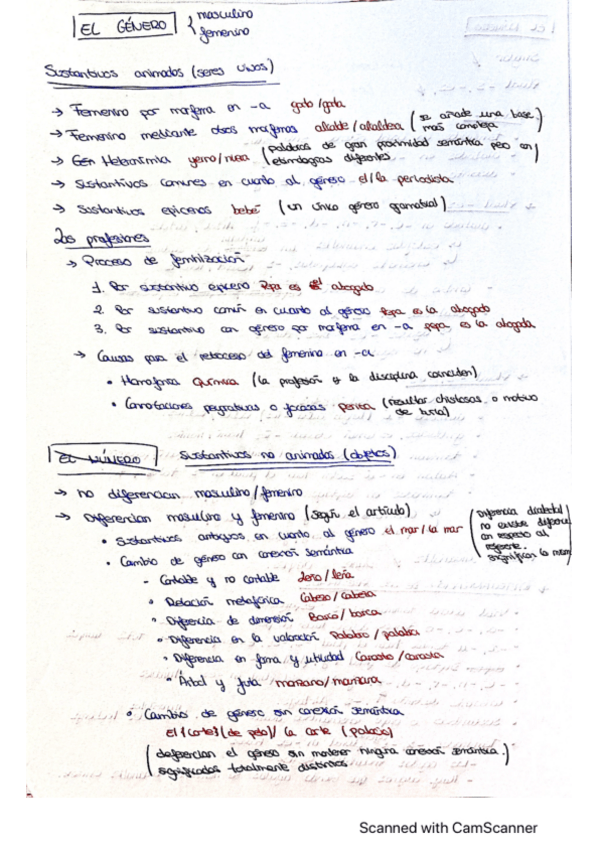 EL GÉNERO { masculino
femenino
Sustantivos animados (seres vivos)
→ Femenino por morfema en -a gato/gata
→ Femenino mediante otros morfemas alcalde/alcaldesa (se añade una base más compleja)
→ Gen Heteronimia yerno/nuera (palabras de gran proximidad semántica pero en etimologías diferentes)
→ Sustantivos comunes en cuanto al género el/la periodista
→ Sustantivos epicenos bebé (un único género gramatical)
Las profesiones
→ Proceso de feminización
1. Por sustantivo epiceno Pepa es el abogado
2. Por sustantivo común en cuanto al género Pepa es la abogado
3. Por sustantivo con género por morfema en -a Pepa es la abogada
→ Causas para el retroceso del femenino en -a
• Homofonía Química (la profesión y la disciplina coinciden)
• Connotaciones peyorativas o jocosas perita (resultar chistosas o motivo de burla)
EL NÚMERO Sustantivos no animados (objetos)
→ no diferencian masculino/femenino
→ Diferencian masculino y femenino (según el artículo)
• Sustantivos ambiguos en cuanto al género el mar/la mar (Diferencia dialectal no existe diferencia con respecto al referente. significan lo mismo)
• Cambio de género con conexión semántica
- Contable y no contable leño/leña
• Relación metafórica Cabezo/cabeza
• Diferencia de dimensión Barco/barca
• Diferencia en la valoración Palabro/palabra
• Diferencia en forma y utilidad Canasto/canasta
• Árbol y fruta manzano/manzana
• Cambio de género sin conexión semántica
El {corte} {de pelo}/ la corte (palacio)
(diferencian el género sin mantener ninguna conexión semántica.
significados totalmente distintos)
Scanned with CamScanner